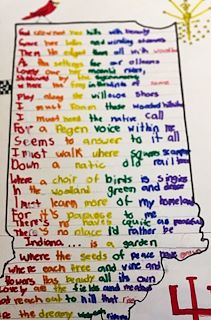 God crowned her hills with beauty
Gave her lakes and winding streams
Then He edged them all with woodlands
As the settings for our dreams
Lovely are her moonlit rivers,
Shadowed by the sycamores
Where the fragrant winds of
Play along the willow Shore
I must Roam those Wooded hillsides
I must heed the native call
For a Pagen voice within me
Seems to answer to it all
I must walk where Squaws scamper
Down a rustic old rail
Where a choir of birds is singing
In the woodland green and
I must learn more of my homeland
For it's paradise to me
There's no haven quite as peaceful
There's no place I'd rather be
Indiana... is a garden
Where the seeds of peace have
where each tree and vine and
flowers Has beauty all its own
Lovely are the fields and meadows
that reach out to hill that rise
Where the dreamy